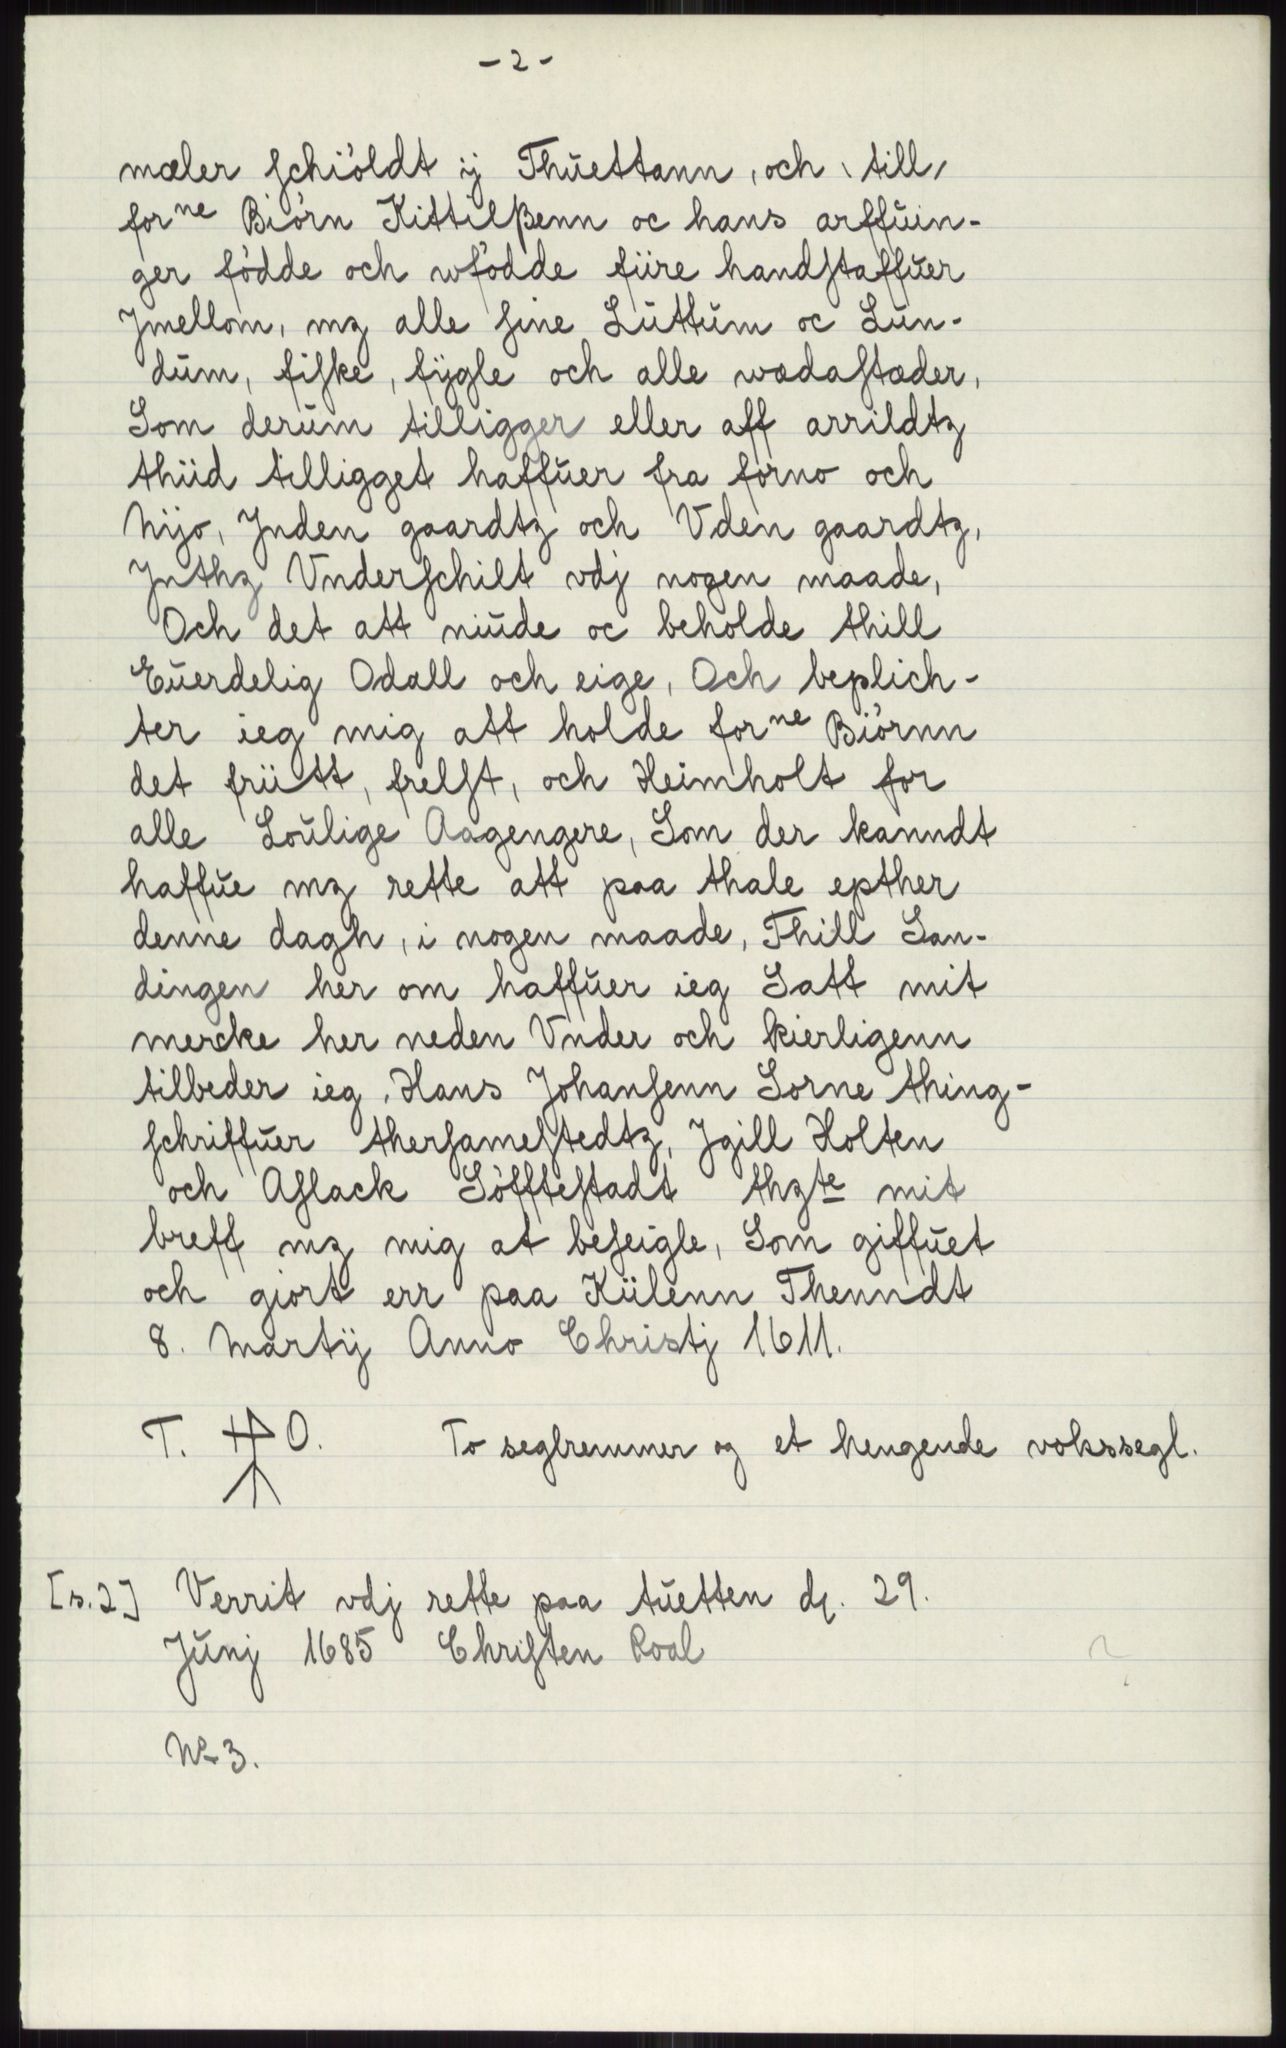 - 2 -
mæler schiöldt ij Thuettann, och, till,
for<sup>ne</sup> Biörn Kittilßenn oc hans arffuin-
ger födde och wfödde fiire handstaffuer
Jmellom, mz alle sine Luttum oc Lun-
dum, fiske, fÿgle och alle wædastæder,
Som derum tilligger eller aff arrildtz
thiid tilligget haffuer fra forno och
Nijo, Jnden gaardtz och Vden gaardtz,
Jnthz Vnderschilt vdj nogen maade,
Och det att niude oc beholde thill
Euerdelig Odall och eige, Och beplich-
ter ieg mig att holde for<sup>ne</sup> Biörnn
det friitt, frelst, och Heimholt for
alle Loulige Aagengere, Som der kanndt
haffue mz rette att paa thale epther
denne dagh, i nogen maade, Thill San-
dingen her om haffuer ieg Satt mit
mercke her neden Vnder och kierligenn
tilbeder ieg, Hans Johansenn Sorne thing-
schriffuer thersamestedtz, Jgill Holten
och Aslack Söfftestadt thzte mit
breff mz mig at beseigle, Som giffuet
och giort err paa Kiilenn Thenndt
8. Martij Anno Christj 1611.
T. O. To seglremmer og et hengende vokssegl.
[s.2] Verrit vdj rette paa tuetten d. 29.
Junj 1685 Christen Roal
№ 3.